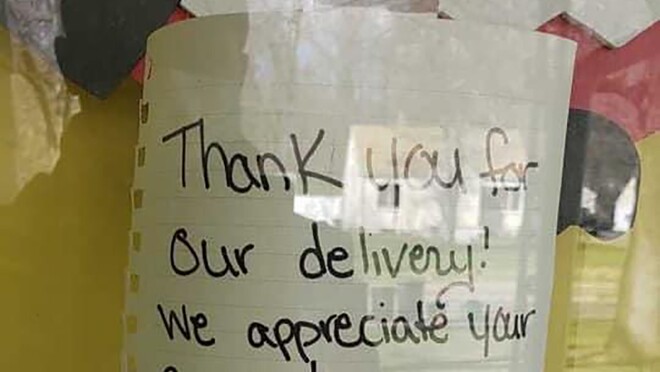 Thank you for
our delivery!
We appreciate your